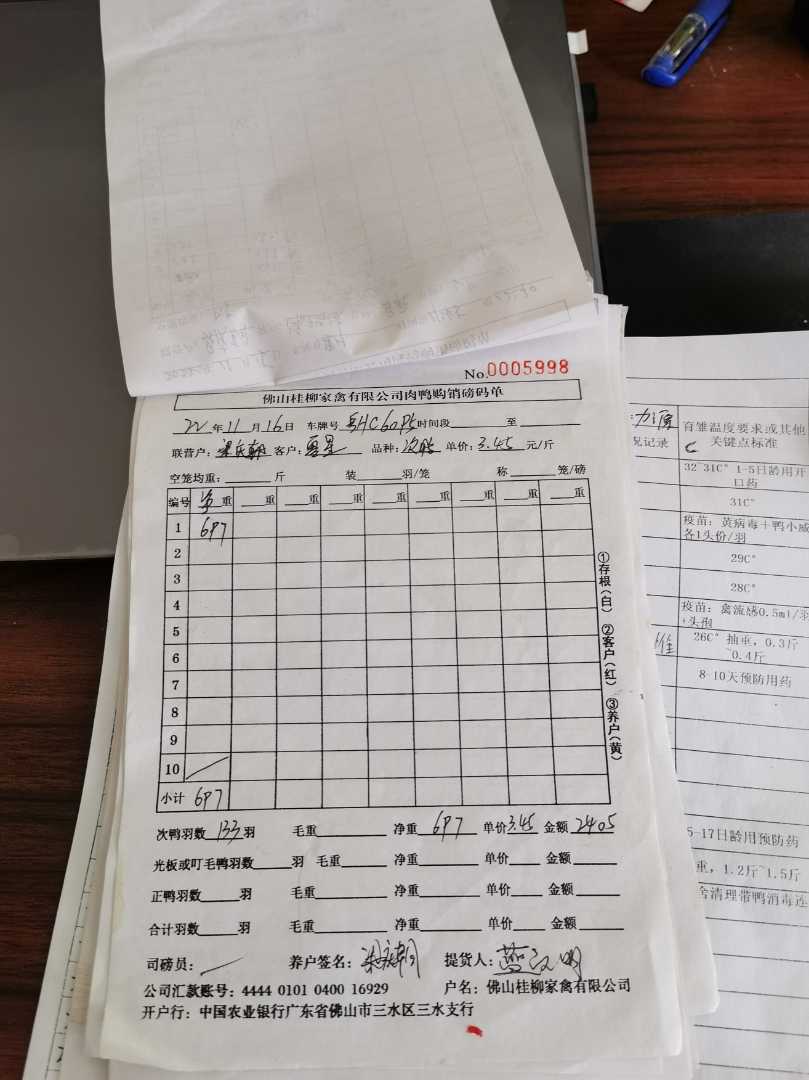 No.0005998
佛山桂柳家禽有限公司肉鸭购销磅码单
22年11月16日 车牌号 时间段 至
联营户: 客户: 品种:次鸭 单价:3.45元/斤
空笼均重: 斤 装 羽/笼 称 笼/磅
编号 净重 重 重 重 重 重 重 重 重
1 697
2
3
4
5
6
7
8
9
10
小计 697
①存根(白) ②客户(红) ③养户(黄)
次鸭羽数133羽 毛重 净重697 单价3.45 金额2405
光板或叮毛鸭羽数 羽 毛重 净重 单价 金额
正鸭羽数 羽 毛重 净重 单价 金额
合计羽数 羽 毛重 净重 单价 金额
司磅员: 养户签名: 提货人:
公司汇款账号:4444 0101 0400 16929 户名:佛山桂柳家禽有限公司
开户行:中国农业银行广东省佛山市三水区三水支行
况记录
育雏温度要求或其他
关键点标准
32~31C° 1-5日龄用开
口药
31C°
疫苗:黄病毒+鸭小
各1头份/羽
29C°
28C°
疫苗:禽流感0.5ml/羽
26C° 抽重,0.3斤
~0.4斤
8-10天预防用药
5-17日龄用预防药
重,1.2斤~1.5斤
舍清理带鸭消毒连